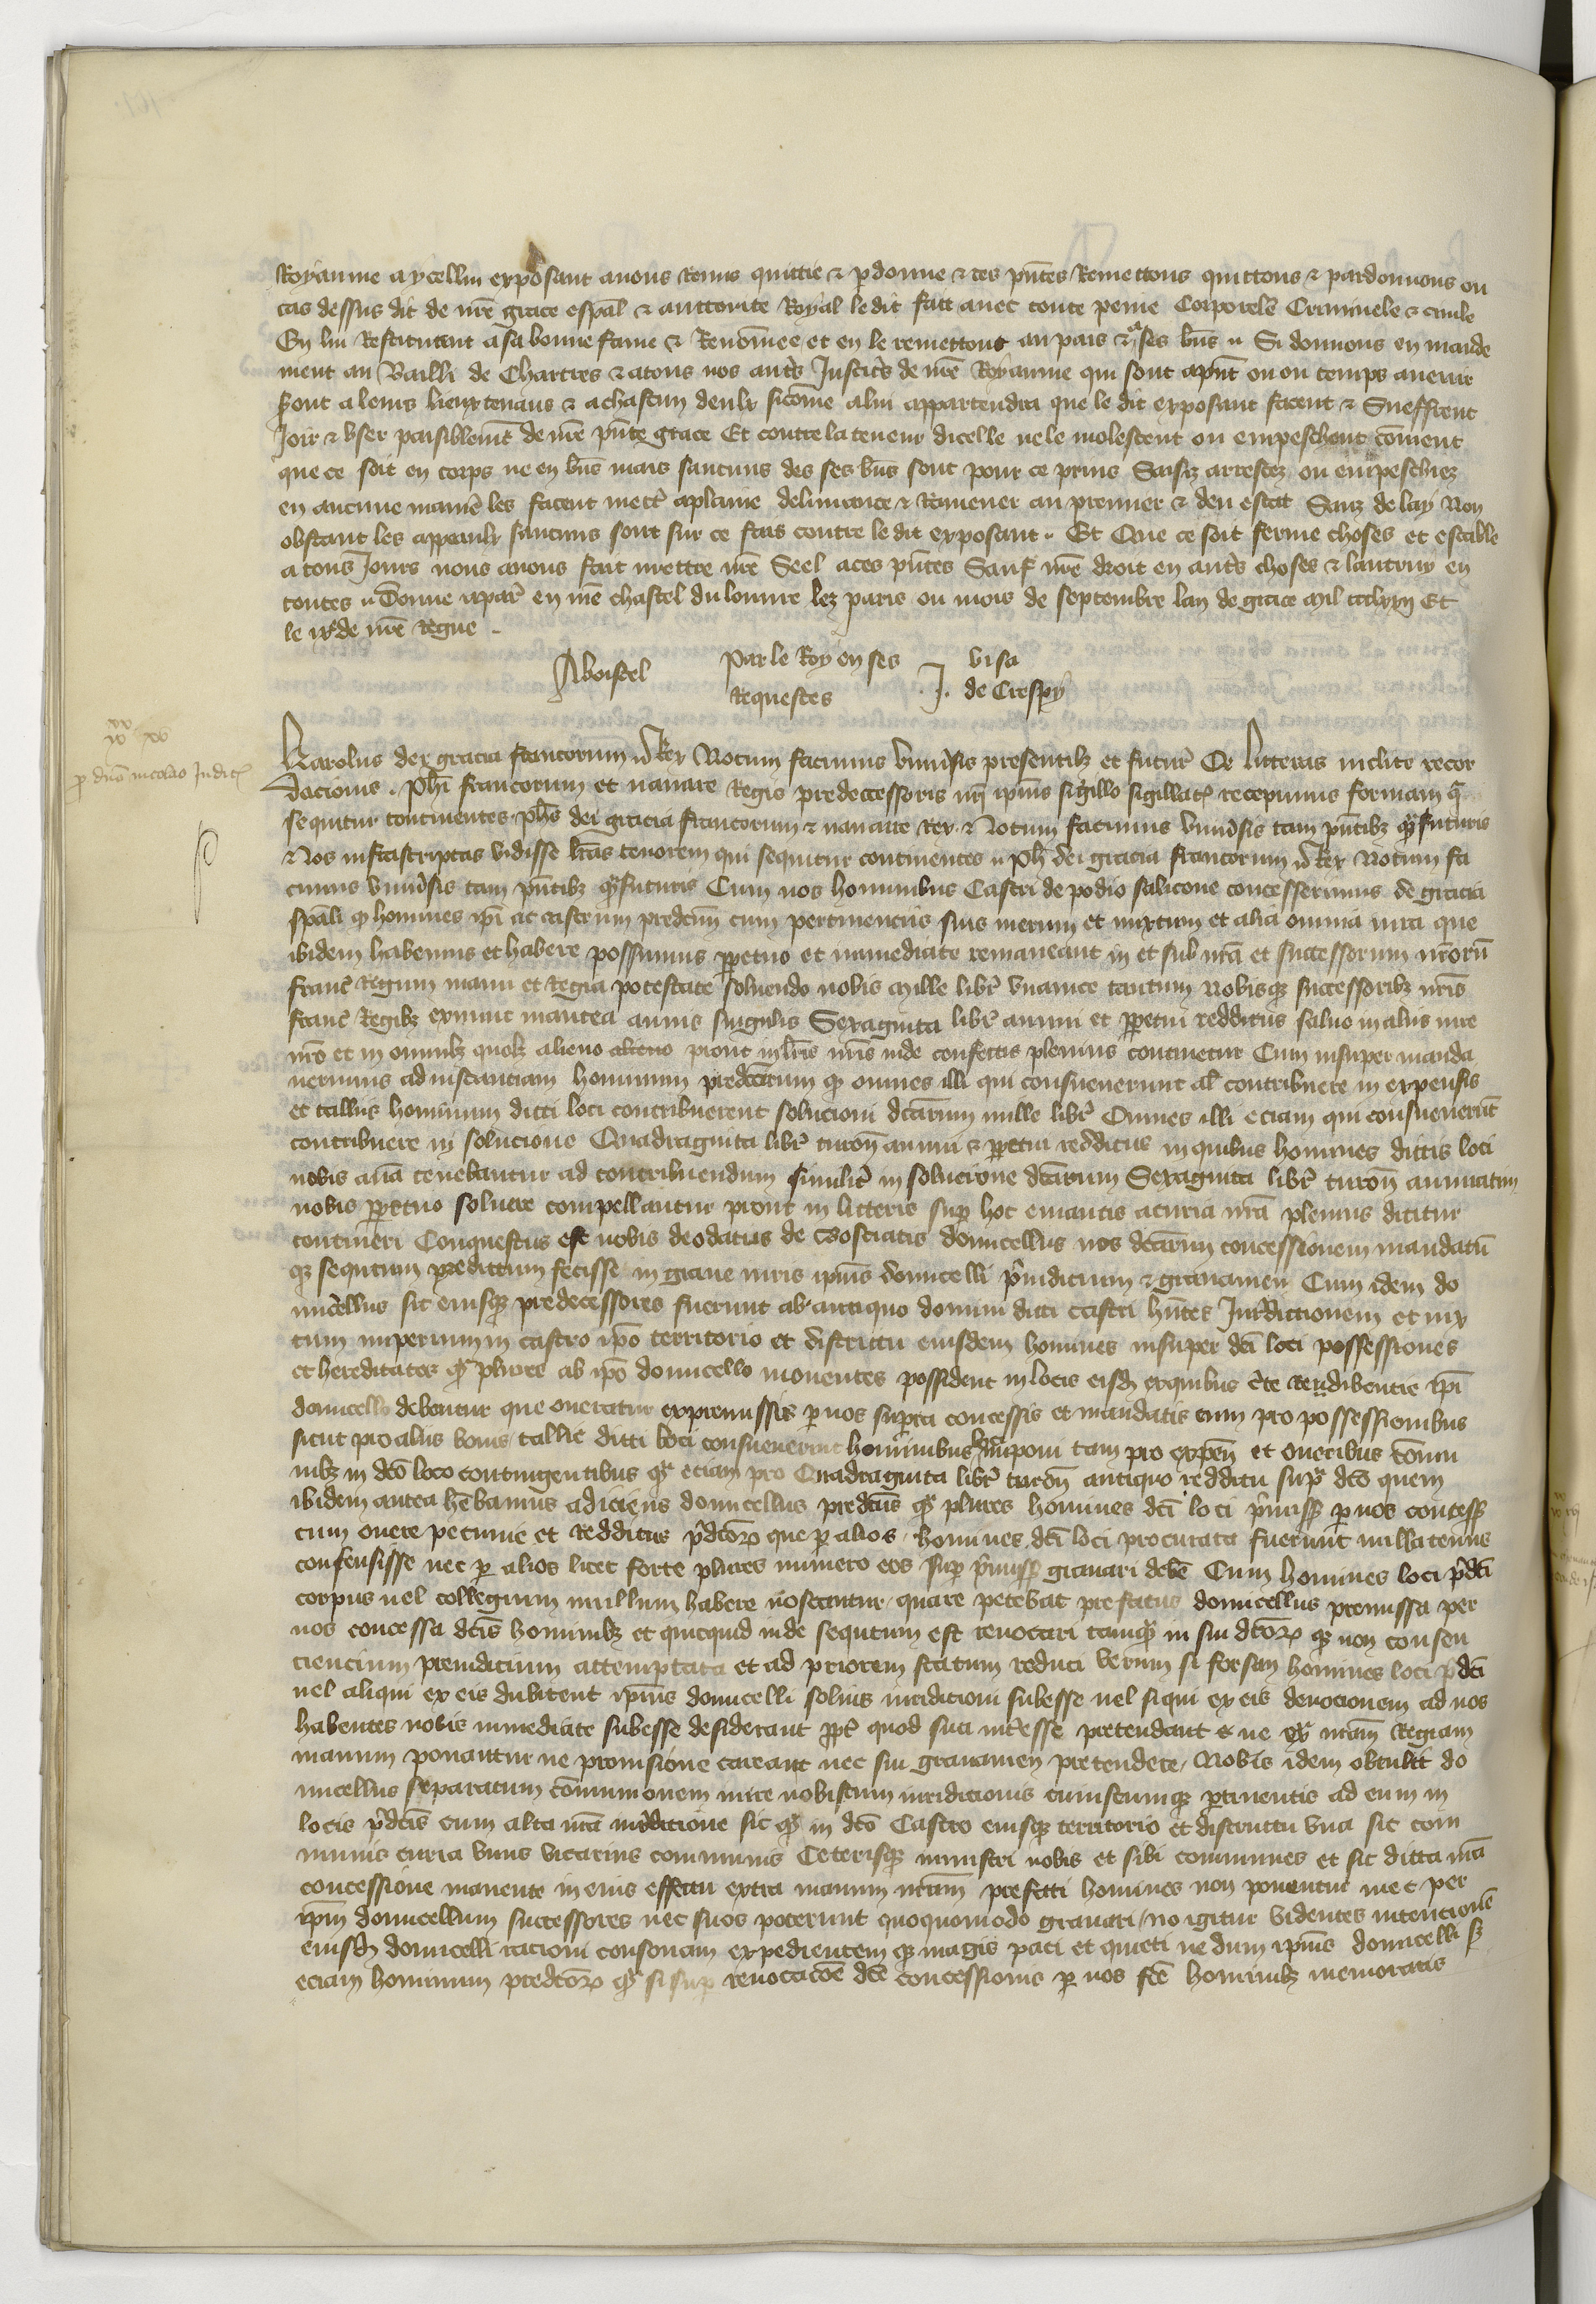 Royaume a ycellui exposant avons Remis quittie & pdonne & ces pntes Remettons quittons & pardonnons ou
cas dessus dit de nre grace espal & auctorite Royal le dit fait avec toute peine Corporele Criminele & civile
En lui Restituant a sa bonne fame & Renommee et en le remettons au pais & a ses bns Si donnons en mande
ment au Bailli de Chartres & a tous nos autrs Justicrs de nre Royaume qui sont apnt ou ou temps avenir
seront a leurs lieuxtenans & a chascun deulx sicome a lui appartendra que le dit exposant facent & Sueffrent
Joir & user paisiblemt de nre pnte grace Et contre la teneur dicelle ne le molestent ou empeschent coment
que ce soit en corps ne en bns mais saucuns des ses bns sont pour ce prins Saisiz arrestez ou empeschiez
en aucune manie les facent mettr a plaine delivrance & Ramener au premier & deu estat Sanz delay Non
obstant les appeaulx saucuns sont sur ce fais contre le dit exposant Et Que ce soit ferme choses et estable
a tous Jours nous avons fait mettre nre Seel a ces pntes Sauf nre droit en autrs choses & lautruy en
toutes Donne a par en nre chastel du louvre lez paris ou mois de septembre lan de grace Mil ccclxxii Et
le ixe de nre Regne
Par le Roy en ses visa
Requestes J. de Crespy
p dno nicolao Judic
Karolus dei gracia francorum Rex Notum facimus univsis presentibz et futur Nos Litteras inclite recor
dacionis Phi francorum et navarre Regis predecessoris nri ipius sigillo sigillatas recepimus formam q
sequitur continentes phs dei gracia francorum & navarre Rex Notum facimus univsis tam pntibz qm futuris
Nos infrascriptas vidisse lras tenorem qui sequitur continentes Ph dei gracia francorum Rex Notum fa
cimus univsis tam pntibz qm futuris Cum nos hominibus Castri de podio salicone concesserimus de gracia
spali q homines ipi ac castrum predcm cum pertinenciis suis merum et mixtum et alia omnia iura que
ibidem habemus et habere possumus ppetuo et immediate remaneant in et sub nra et successorum nrorum
franc Regum manu et Regia potestate solvendo nobis Mille libr unamce tantum Nobisqz successoribz nris
franc Regibz exnunc inantea annis singulis Sexaginta libr annui et ppetui redditus salvo in aliis iure
nro et in omnibz quolz alieno alieno prout in lris nris inde confectis plenius continetur Cum insuper manda
verimus ad instanciam hominum predcorum q omnes illi qui consueverunt al contribuere in expensis
et talliis hominum dicti loci contribuerent solucioni dcarum mille libr Omnes illi eciam qui consueverunt
contribuere in solucione Quadraginta libr turon annui & ppetui redditus in quibus homines dictis loci
nobis ana tenebantur ad contribuendum similit in solucione dcarum Sexaginta libr turon annuatim
nobis ppetuo solvere compellantur prout in litteris sup hoc emanatis a curia nra plenius dicitur
contineri Conquestus est nobis deodatus de Boseiatis domicellus nos dcarum concessionem mandatu
qz sequtum predictum fecisse in grave iuris ipius domicelli piudicium & gravamen Cum idem do
micellus sic eiusqz predecessores fuerunt ab antiquo domini dicti castri hntes Jurdictionem et mix
tum imperium in castro ipo territorio et districtu eiusdem homines insuper dci loci possessiones
et hereditates qm plures ab ipo domicello moventes possident in locis eisdm exquibus cte
domicello debentur que oneratur expremissis p nos supra concessis et mandatis cum pro possessionibus
sicut pro aliis bonis tallie dicti loci consueverint hominibus imponi tam pro expen et oneribus comu
nibz in dco loco contingentibus qm eciam pro Quadraginta libr turon antiquo redditu supra dco quem
ibidem antea hebamus adiciens domicellus predcus qm plures homines dci loci pmiss p nos concess
cum onere pecunie et redditus pdcorz que p alios homines dci loci procurata fuerunt nullatenus
consensisse nec p alios licet forte plures numero eos sup pmiss gravari debe Cum homines loci pdci
corpus vel collegium nullum habere noscantur quare petebat prefatus domicellus premissa per
nos concessa dcis hominibz et quicquid inde sequtum est revocari tanqm in sui dcorz qz non consen
ciencium preiudicium attemptata et ad priorem statum reduci verum si forsan homines loci pdci
vel aliqui ex eis dubitent ipius domicelli solius iuridicioni subesse vel siqui ex eis devocionem ad nos
habentes nobis inmediate subesse desiderant ppt quod sua intesse pretendant & ne ext nram Regiam
manum ponantur ne provisione careant nec sui gravamen pretendere Nobis idem obtulit do
micellus separatum comunionem iure nobiscum iuridicionis cuiuscumqz ptinentis ad eum in
locis pdcis cum alta nra iurdicione sic q in dco Castro eiusqz territorio et districtu una sit com
munis curia unus vicarius communis Ceterisqz ministri nobis et sibi communes et sic dicta nra
concessione manente in eius effectu extra manum nram prefati homines non ponentur nec per
ipm domicellum successores nec suos poterunt quoquomodo gravari no igitur videntes intencione
eiusdm domicelli racioni consonam expedientem qz magis paci et quieti ne dum ipius domicelli sz
eciam hominum predcorz qm si sup revocacoe dce concessionis p nos fce hominibz memoratis